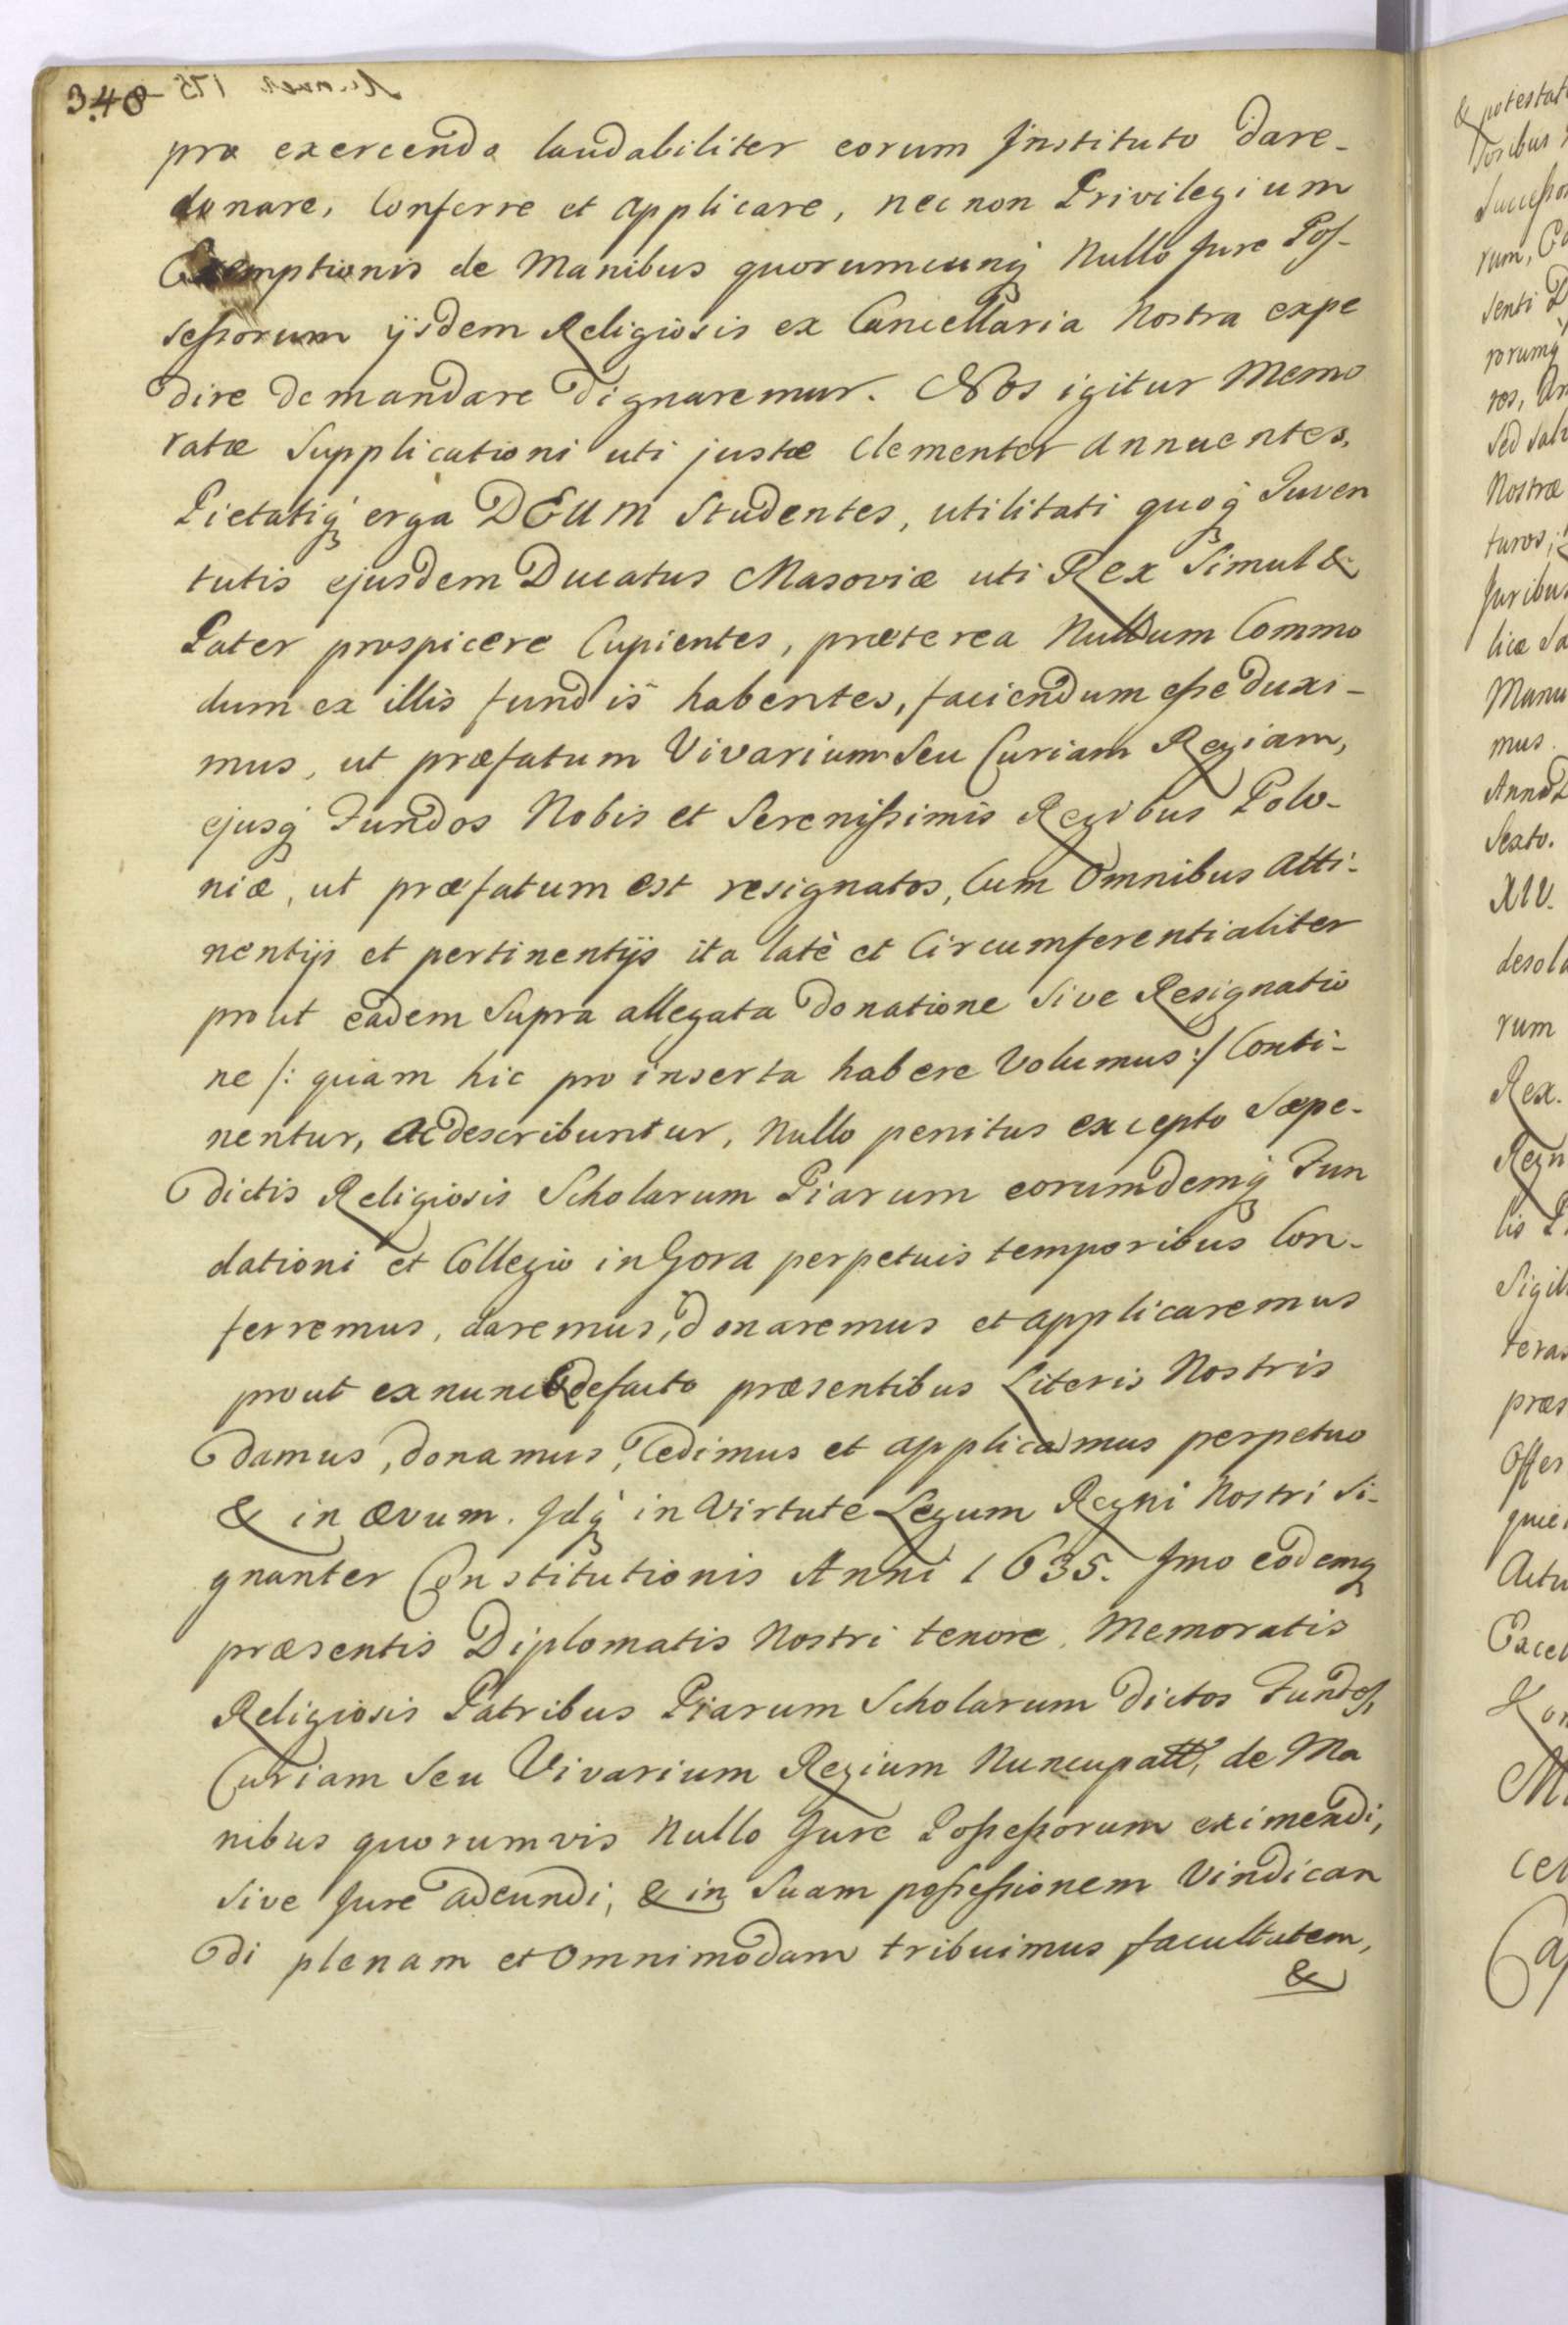 340
pro exercendo laudabiliter eorum Jnstituto dare-
donare, Conferre et applicare, necnon Privilegium
Exemptionis de Manibus quorumcunq́ Nullo Jure Pos-
seßorum ijsdem Religiosis ex Cancellaria Nostra expe
dire demandare dignaremur. Nos igitur Memo
ratæ Supplicationi uti justæ Clementer annuentes,
Pietatiq́ erga DEUM Studentes, utilitati quoq́ Juven
tutis ejusdem Ducatus Masoviæ uti Rex Simul &
Pater prospicere Cupientes, præterea Nullum Commo
dum ex illis fundis habentes, faciendum eße duxi-
mus, ut præfatum Vivarium Seu Curiam Regiam,
ejusq́ Fundos Nobis et Serenißimis Regibus Polo-
niæ, ut præfatum est resignatos, Cum Omnibus atti-
nentijs et pertinentijs ita latè et Circumferentialiter
prout eadem Supra allegata donatione Sive Resignatio
ne /: quam hic pro inserta habere Volumus :/ Conti-
nentur, ac describuntur, Nullo penitus excepto Sæpe-
dictis Religiosis Scholarum Piarum eorumdemq́ Fun
dationi et Collegio in Gora perpetuis temporibus Con-
ferremus, daremus, donaremus et applicaremus
prout ex nunc & de facto præsentibus Literis Nostris
damus, donamus, Cedimus et applicamus perpetuo
& in ævum. Jdq́ in Virtute Legum Regni Nostri Si-
gnanter Constitutionis Anni 1635. Jmo eodemq
præsentis Diplomatis Nostri tenore, Memoratis
Religiosis Patribus Piarum Scholarum dictos Fundos,
Curiam Seu Vivarium Regium Nuncupatt, de Ma
nibus quorumvis Nullo Jure Poßeßorum eximendi,
Sive Jure adeundi, & in Suam poßeßionem Vindican
di plenam et Omnimodam tribuimus facultatem,
&